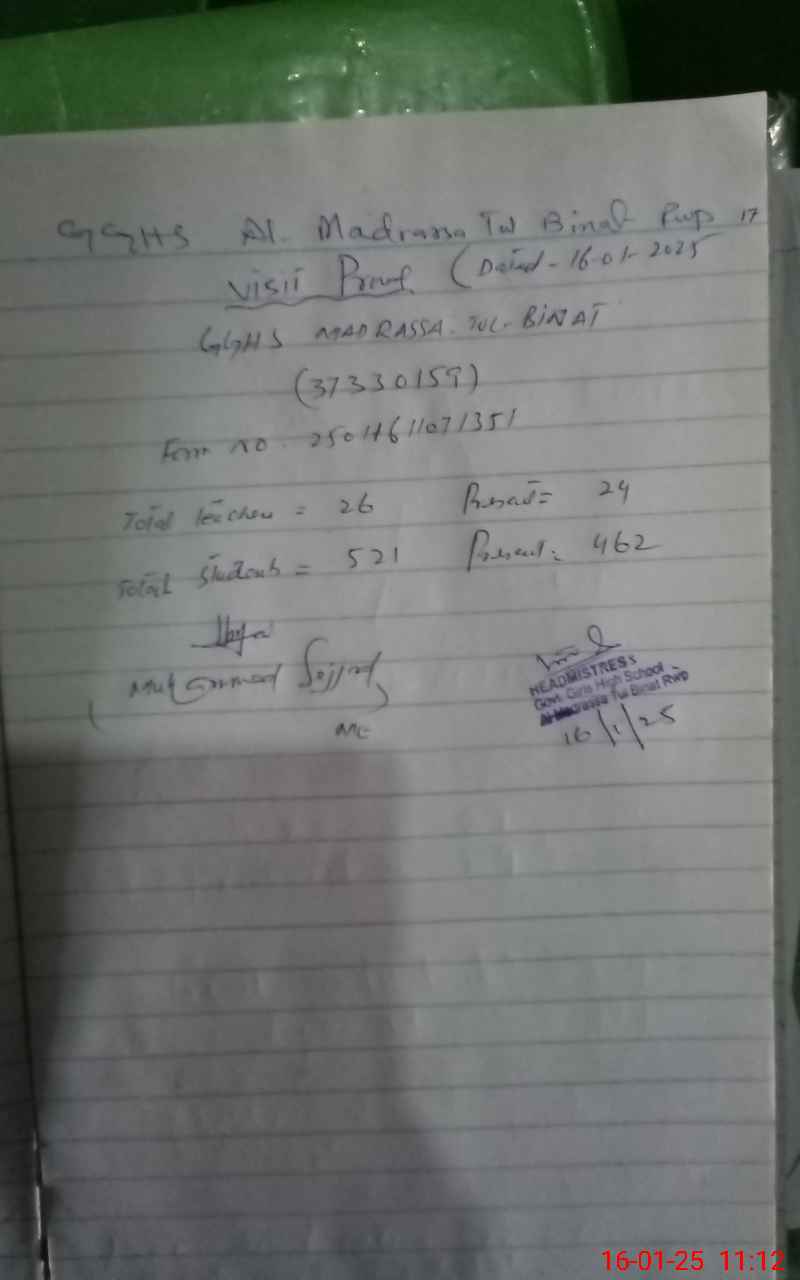 GGHS Al. Madrassa Tul Binat Rwp 17
Visit Proof (Dated - 16-01-2025
GGHS MADRASSA-TUL-BINAT
(37330159)
Form no. 25011611071351
Total teachers = 26 Present = 24
Total Students = 521 Present = 462
(Muhammad Sajjad)
HEADMISTRESS
Govt. Girls High School
Al-Madrassa Tul Binat Rwp
16/1/25
16-01-25 11:12